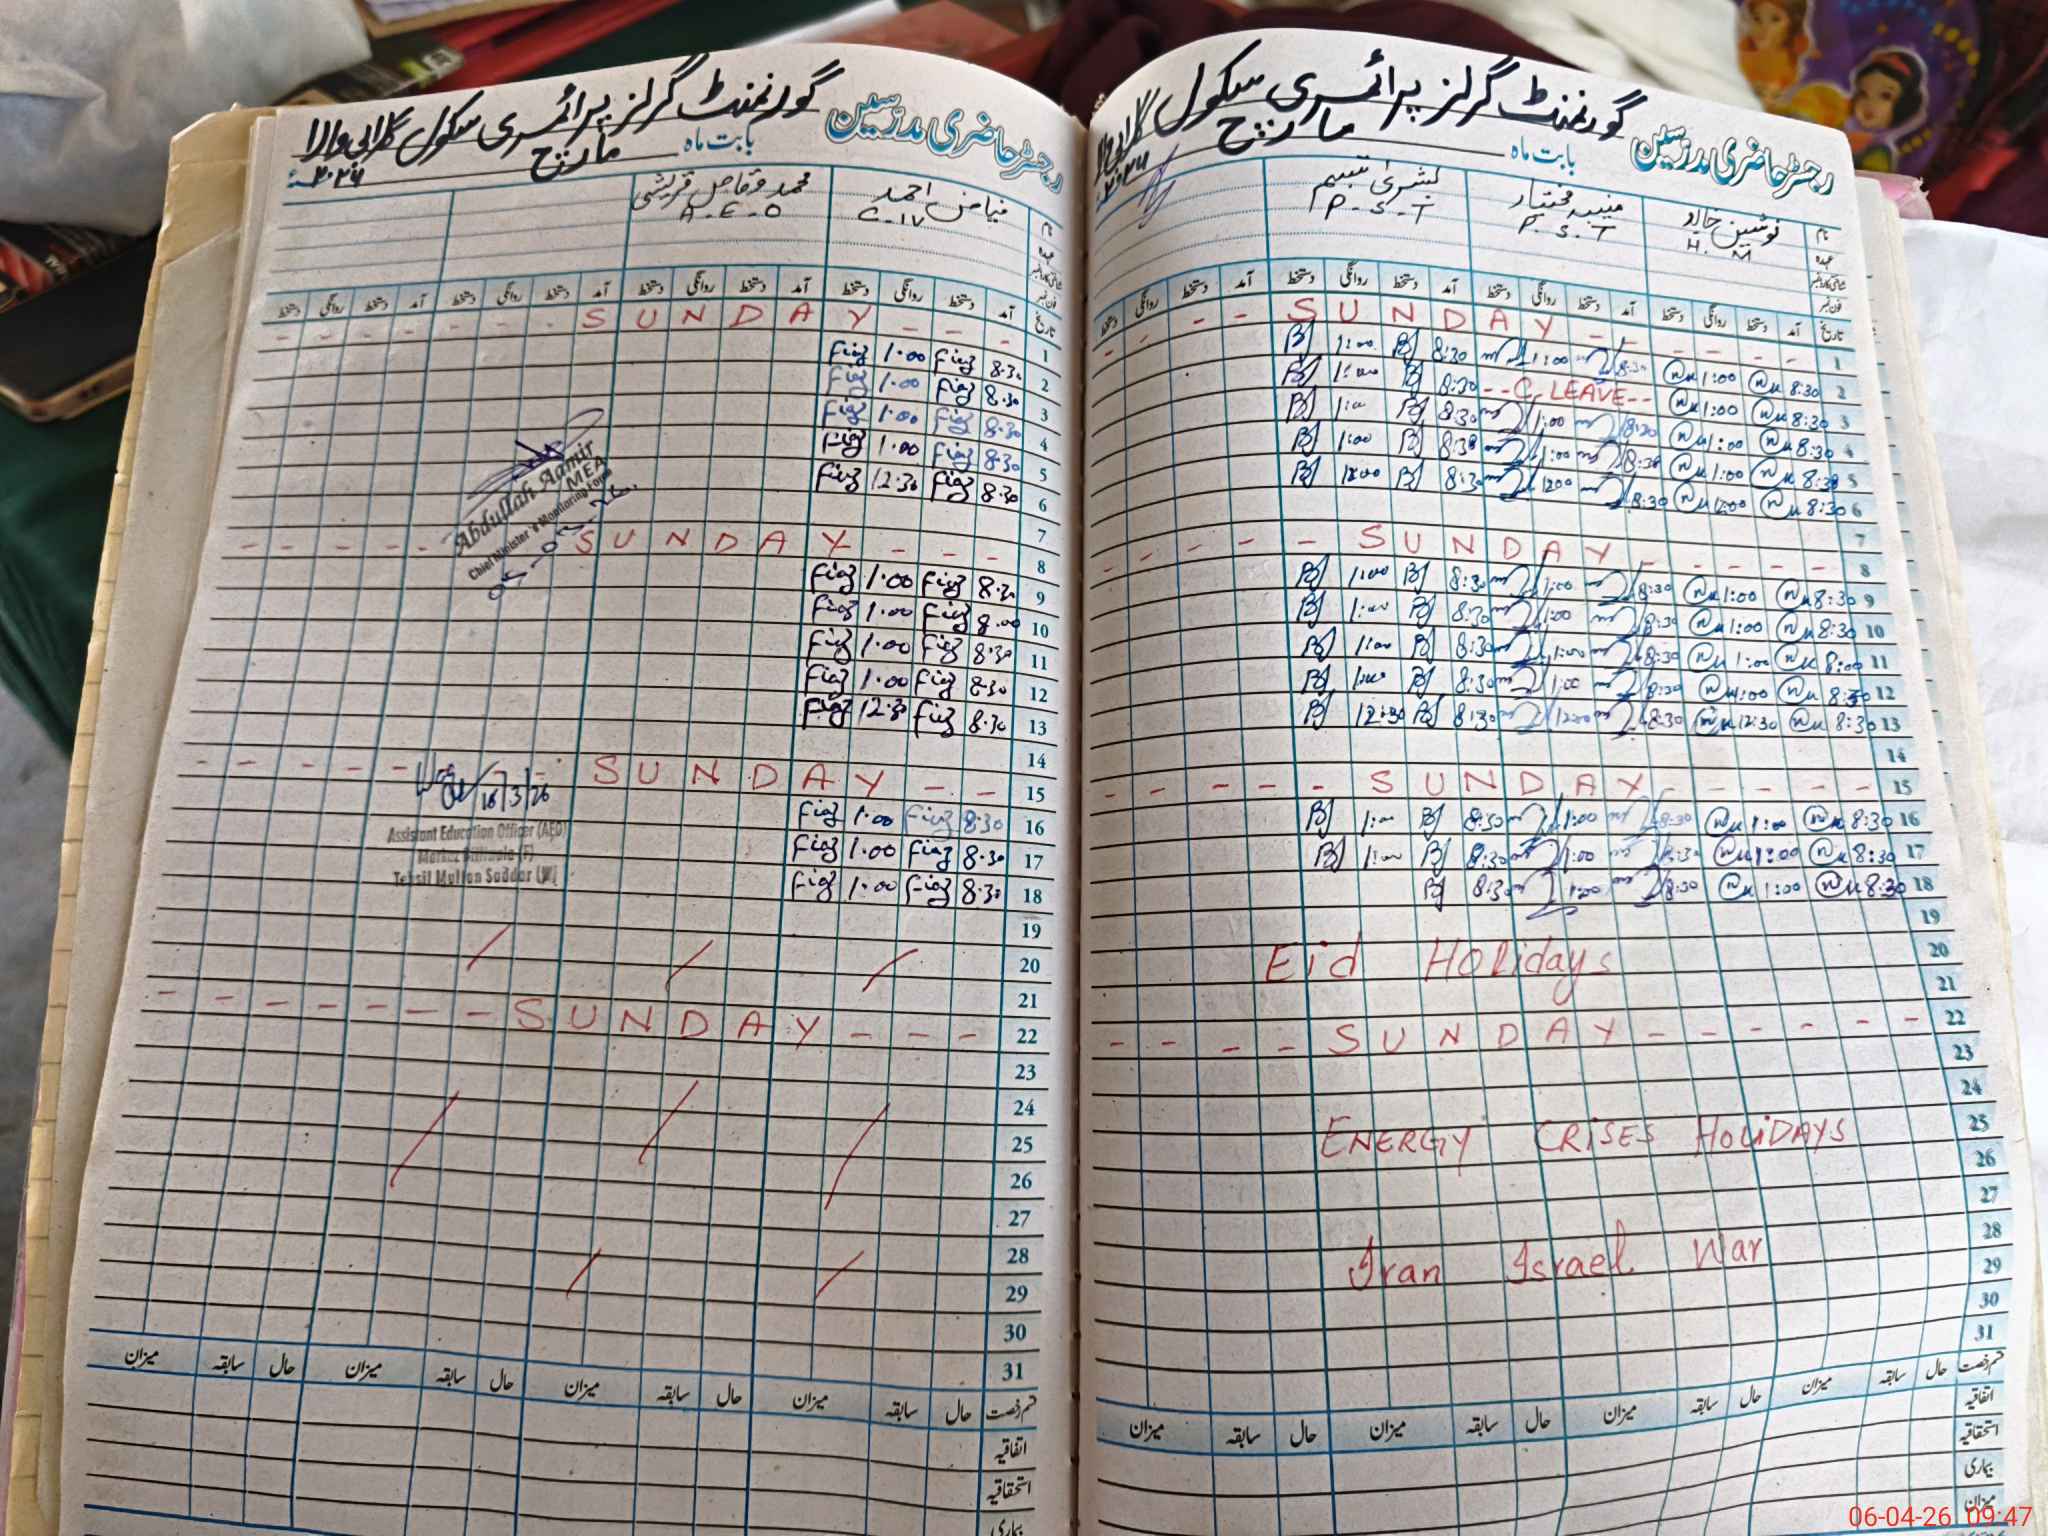 رجسٹر حاضری مدرّسین گورنمنٹ گرلز پرائمری سکول گلابی والا
بابت ماہ مارچ ۲۰۲۶
نام نوشین خالد منیبہ مختیار بشریٰ تبسم
عہدہ H.M P.S.T P-S-T
تاریخ آمد دستخط روانگی دستخط آمد دستخط روانگی دستخط آمد دستخط روانگی دستخط آمد دستخط روانگی دستخط
1 SUNDAY
2 8:30 1:00 8:30 1:00 8:30 1:00
3 8:30 1:00 --C.LEAVE-- 8:30 1:00
4 8:30 1:00 8:30 1:00 8:30 1:00
5 8:30 1:00 8:30 1:00 8:30 1:00
6 8:30 12:00 8:30 1200 8:30 1200
7
8 SUNDAY
9 8:30 1:00 8:30 1:00 8:30 1:00
10 8:30 1:00 8:30 1:00 8:30 1:00
11 8:00 1:00 8:30 1:00 8:30 1:00
12 8:30 1:00 8:30 1:00 8:30 1:00
13 8:30 12:30 8:30 1200 8:30 12:30
14
15 SUNDAY
16 8:30 1:00 8:30 1:00 8:30 1:00
17 8:30 1:00 8:30 1:00 8:30 1:00
18 8:30 1:00 8:30 1:00 8:30
19
20 Eid Holidays
21
22 SUNDAY
23
24
25 ENERGY CRISES HOLIDAYS
26
27
28
29 Iran Israel War
30
31
قسم رخصت حال سابقہ میزان حال سابقہ میزان حال سابقہ میزان
اتفاقیہ
استحقاقیہ
بیماری
میزان
رجسٹر حاضری مدرّسین گورنمنٹ گرلز پرائمری سکول گلابی والا
بابت ماہ مارچ ۲۰۲۶
نام فیاض احمد محمد وقاص قریشی
عہدہ C-IV A-E-O
تاریخ آمد دستخط روانگی دستخط آمد دستخط روانگی دستخط آمد دستخط روانگی دستخط آمد دستخط روانگی دستخط
1 SUNDAY
2 8:30 Fiaz 1:00 Fiaz
3 8:30 Fiaz 1:00 Fiaz
4 8:30 Fiaz 1:00 Fiaz
5 8:30 Fiaz 1:00 Fiaz
6 8:30 Fiaz 12:30 Fiaz
Abdullah Aamir
MEA
Chief Minister's Monitoring Force
7
8 SUNDAY
9 8:30 Fiaz 1:00 Fiaz
10 8:00 Fiaz 1:00 Fiaz
11 8:30 Fiaz 1:00 Fiaz
12 8:30 Fiaz 1:00 Fiaz
13 8:30 Fiaz 12:30 Fiaz
14
15 SUNDAY
16 8:30 Fiaz 1:00 Fiaz
17 8:30 Fiaz 1:00 Fiaz
18 8:30 Fiaz 1:00 Fiaz
/3/26
Assistant Education Officer (AEO)
Markaz (F)
Tehsil Multan Saddar
19
20
21
22 SUNDAY
23
24
25
26
27
28
29
30
31
قسم رخصت حال سابقہ میزان حال سابقہ میزان حال سابقہ میزان حال سابقہ میزان
اتفاقیہ
استحقاقیہ
بیماری
06-04-26 09:47